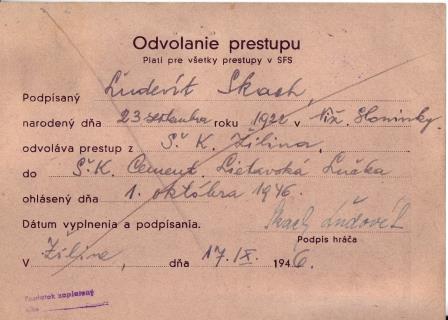 Odvolanie prestupu
Platí pre všetky prestupy v SFS
Podpísaný Ľudevít Skach,
narodený dňa 23 septembra roku 1922 v Niž. Slovinky
odvoláva prestup z Š. K. Žilina,
do Š. K. Cement. Lietavská Lučka
ohlásený dňa 1. októbra 1946.
Dátum vyplnenia a podpísania. Skach Ľudovít
Podpis hráča
V Žiline, dňa 17. IX. 1946.
Poplatok zaplatený